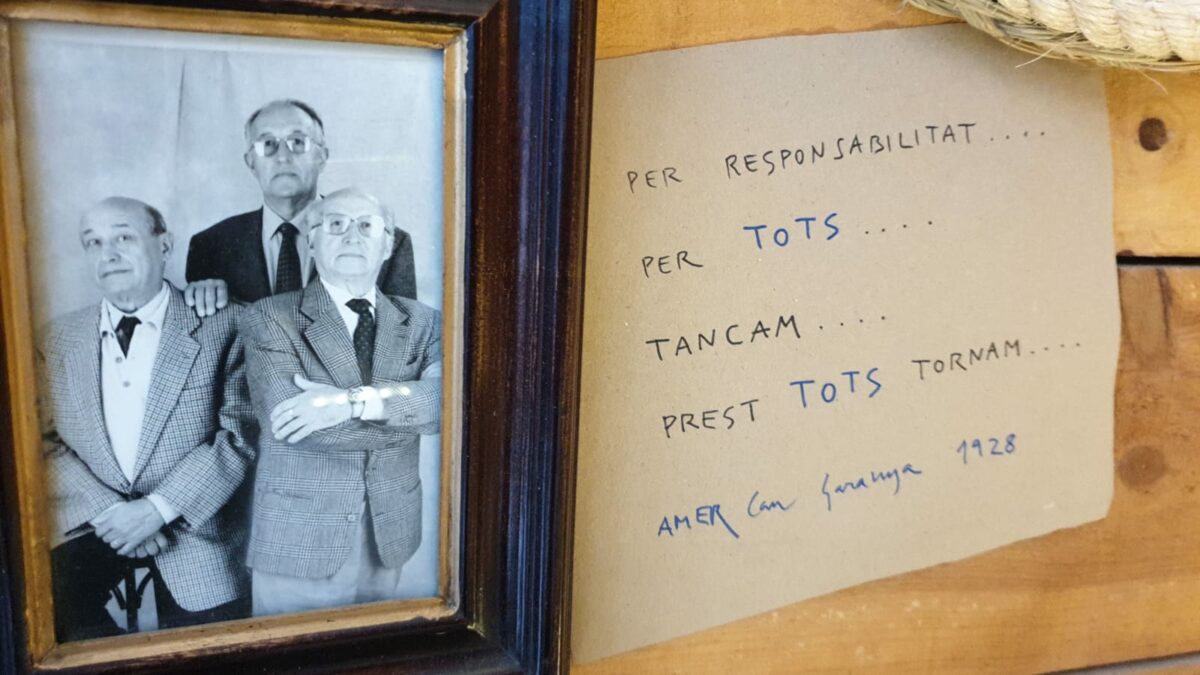 PER RESPONSABILITAT....
PER TOTS....
TANCAM....
PREST TOTS TORNAM....
AMER Can Garanya 1928